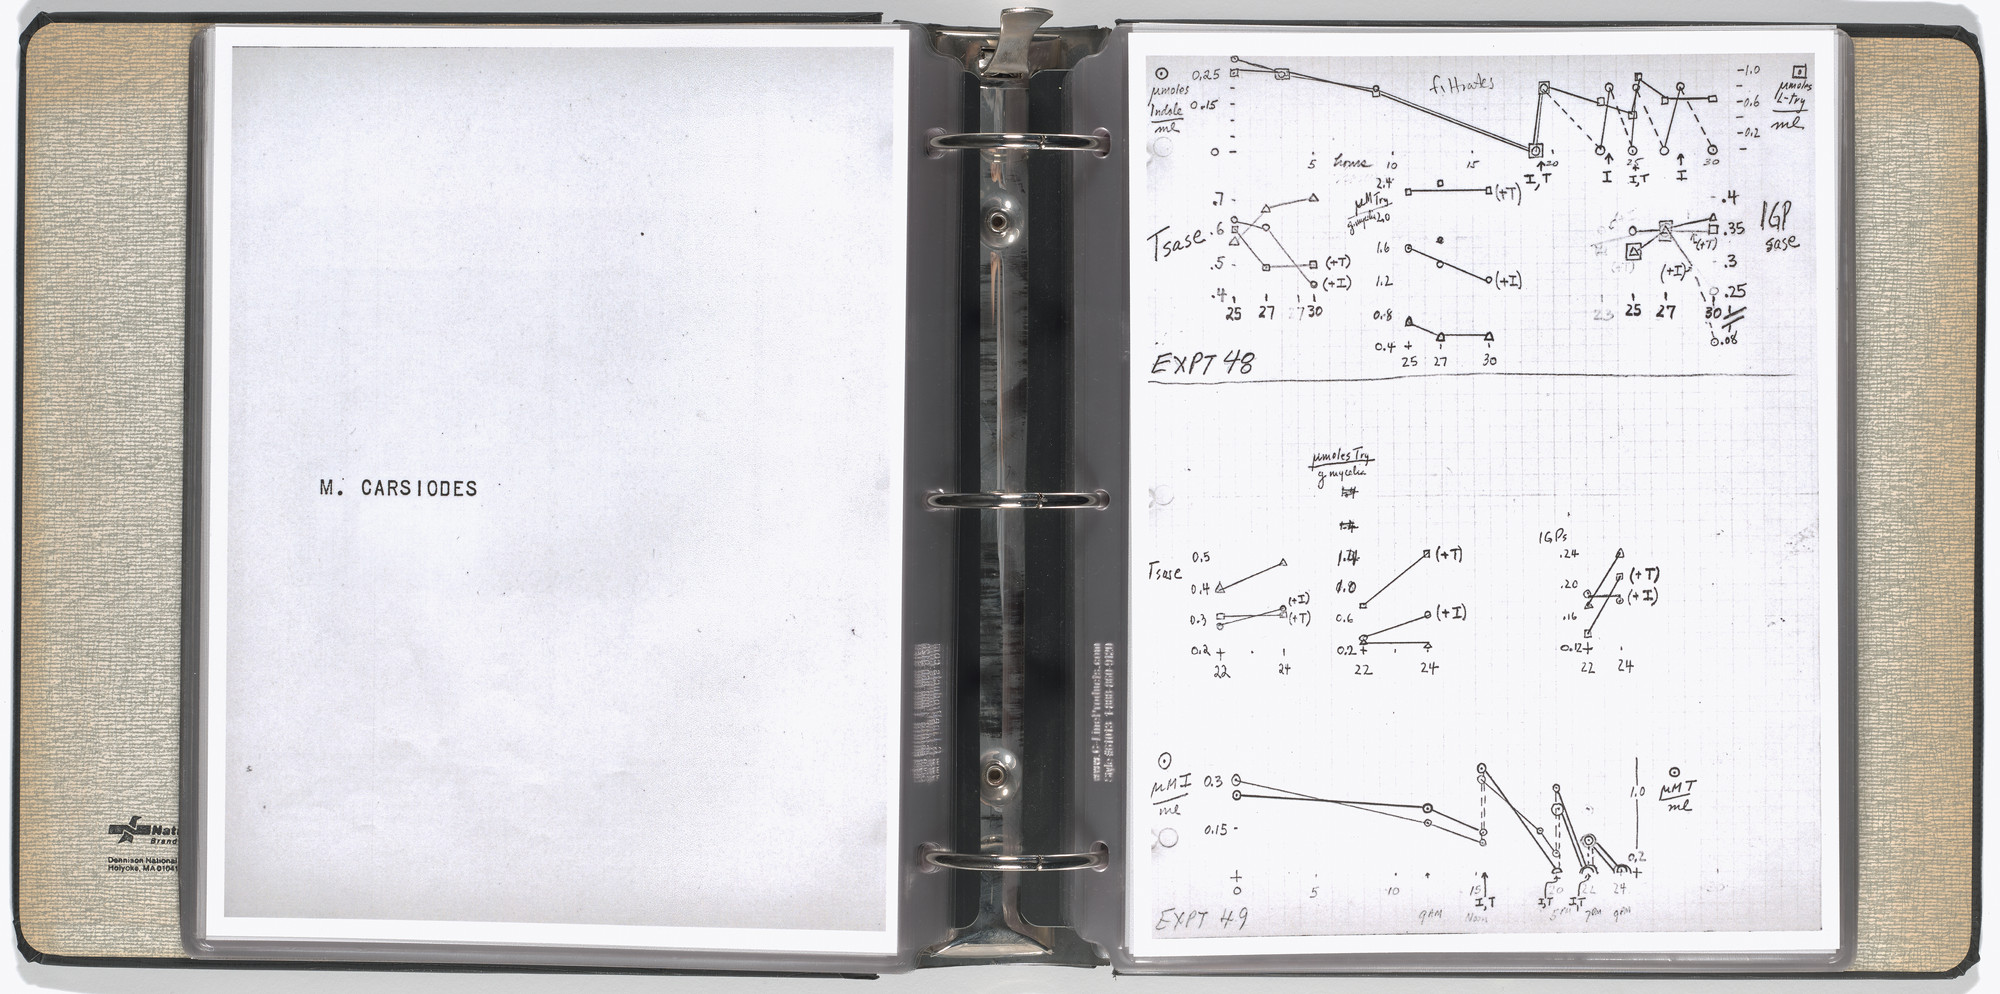 M. CARSIODES
Nati
Brand
Dennison National
Holyoke, MA 01041
www.C-LineProducts.com
0.25
µmoles
Indole
ml
0.15
0
filtrates
5 hours 10 15 20 25 30
I,T I I,T I
-1.0
-0.6
-0.2
µmoles
L-try
ml
Tsase
.7
.6
.5
.4
(+T)
(+I)
25 27 30
µM Try
2.4
2.0
1.6
1.2
0.8
0.4
(+T)
(+I)
25 27 30
IGP
sase
.4
.35
.3
.25
.08
(+T)
(+I)
23 25 27 30
EXPT 48
µmoles Try
g mycelia
Tsase
0.5
0.4
0.3
0.2
(+I)
(+T)
22 24
0.6
0.2
(+T)
(+I)
22 24
IGPs
.24
.20
.16
0.12
(+T)
(+I)
22 24
µM I
ml
0.3
0.15
µM T
ml
1.0
0.2
0 5 10 15 20 22 24
I,T I,T I,T
9AM Noon 5PM 7PM 9PM
EXPT 49